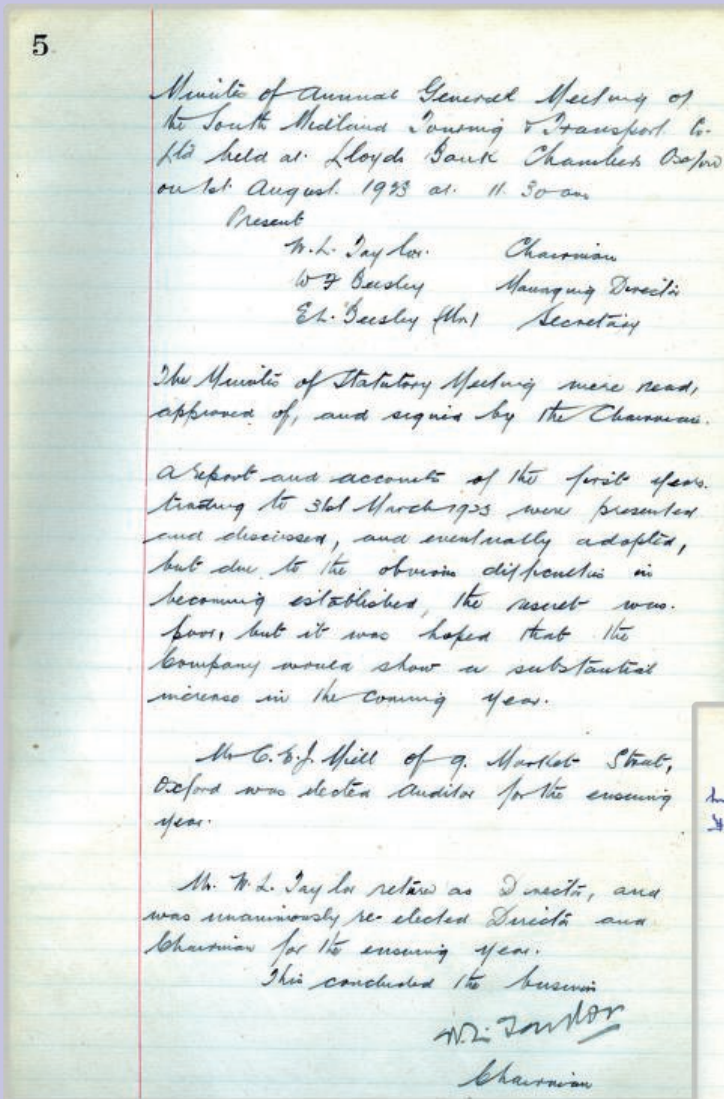 5
Minutes of Annual General Meeting of
the South Midland Touring & Transport Co.
Ltd held at Lloyds Bank Chambers Oxford
on 1st August 1923 at 11.30 am
Present
W.L. Taylor. Chairman
W F Beesley Managing Director
E.L. Beesley Secretary
The Minutes of Statutory Meeting were read,
approved of, and signed by the Chairman.
A report and accounts of the first years
trading to 31st March 1923 were presented
and discussed, and eventually adopted,
but due to the obvious difficulties in
becoming established, the result was
poor, but it was hoped that the
Company would show a substantial
increase in the coming year.
Mr C.E.J. of 9. Market Street,
Oxford was elected Auditor for the ensuing
year.
Mr. W.L. Taylor as Director, and
was unanimously re-elected Director and
Chairman for the ensuing year.
This concluded the business
W.L. Taylor
Chairman